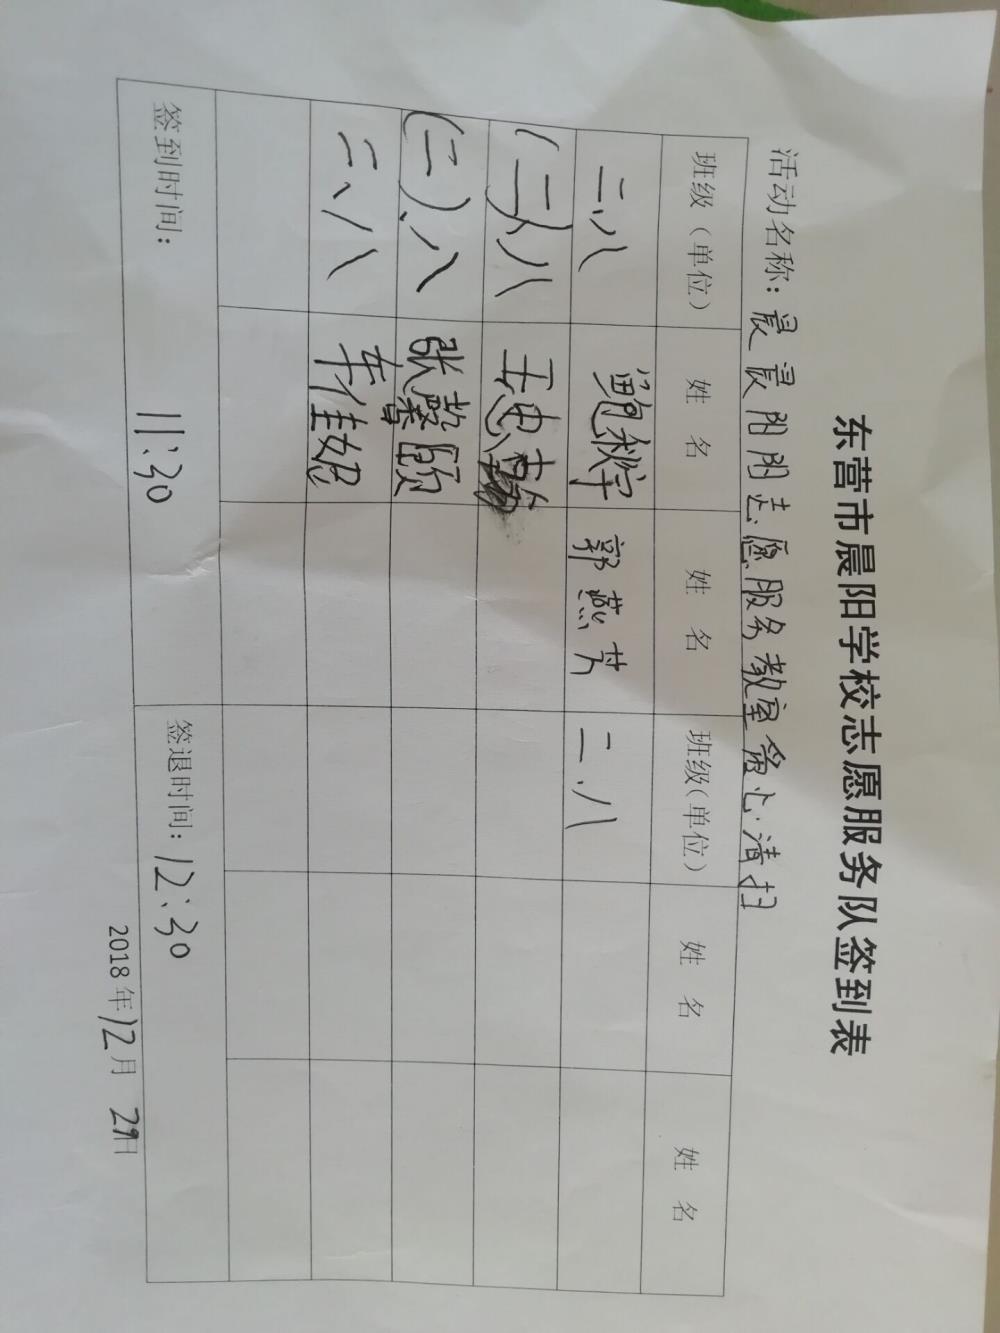 东营市晨阳学校志愿服务队签到表
活动名称：晨晨阳阳志愿服务教室爱心清扫
班级（单位） 姓 名 姓 名 班级（单位） 姓 名 姓 名
二.八 鲍秋宇 郭燕芳 二.八
（二）八 王忠
（二）、八 张馨颐
二、八 车佳妮
签到时间： 11:30 签退时间：12:30
2018年12月 29日